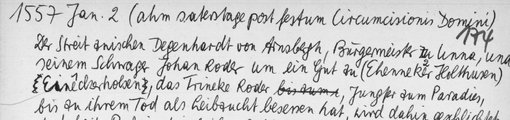 1557 Jan. 2 (ahm saterstage post festum Circumcisionis Domini)
174
Der Streit zwischen Degenhardt von Arnsbergh, Bürgermeister zu Unna, und
seinem Schwager Johan Roder um ein Gut zu (Ehenneker Holthusen)
das Trineke Roder bis zum, Jungfer zum Paradies,
bis zu ihrem Tod als Leibzucht besessen hat, wird dahin geschlichtet